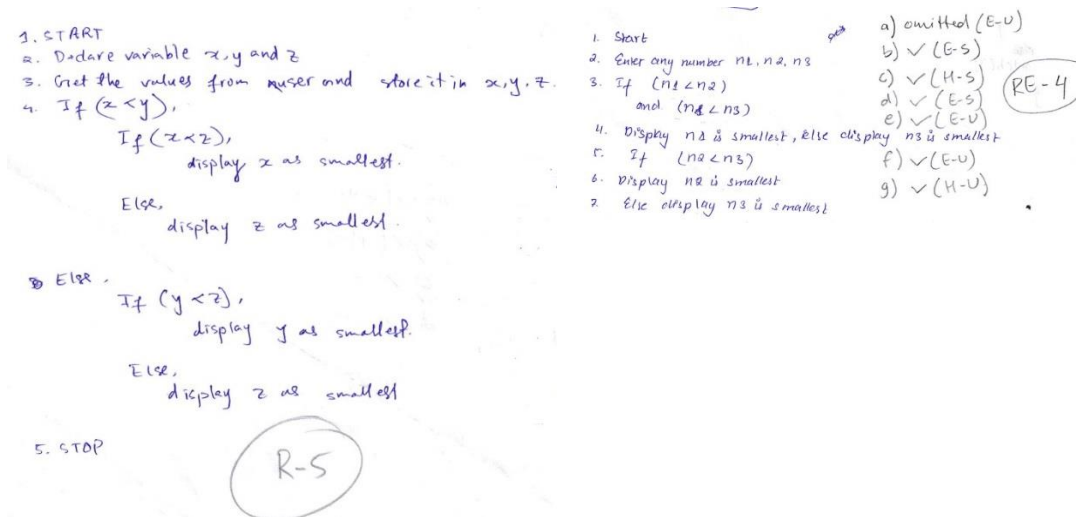 1. START
2. Declare variable x, y and z
3. Get the values from user and store it in x, y, z.
4. If (x < y),
If (x < z),
display x as smallest.
Else,
display z as smallest.
Else,
If (y < z),
display y as smallest.
Else,
display z as smallest
5. STOP
R-5
1. Start
2. Enter any number n1, n2, n3
3. If (n1 < n2)
and (n1 < n3)
4. Display n1 is smallest, else display n3 is smallest
5. If (n2 < n3)
6. Display n2 is smallest
7. Else display n3 is smallest
a) omitted (E-U)
b) ✓ (E-S)
c) ✓ (H-S)
d) ✓ (E-S)
e) ✓ (E-U)
f) ✓ (E-U)
g) ✓ (H-U)
RE-4